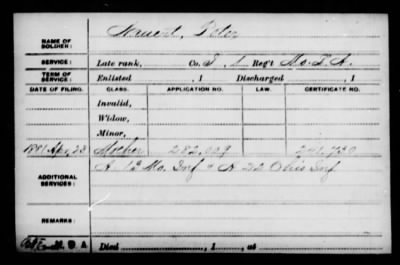 NAME OF SOLDIER: Nruent, Peter
SERVICE: Late rank, Co. I, 1 Reg't Mo. L. A.
TERM OF SERVICE: Enlisted , 1 Discharged , 1
DATE OF FILING. CLASS. APPLICATION NO. LAW. CERTIFICATE NO.
Invalid,
Widow,
Minor,
1881 Apr. 23 Mother 282,029 241,730
ADDITIONAL SERVICES: A. 12 Mo. Inf & A 22 Ohio Inf
REMARKS:
Died , 1 , at